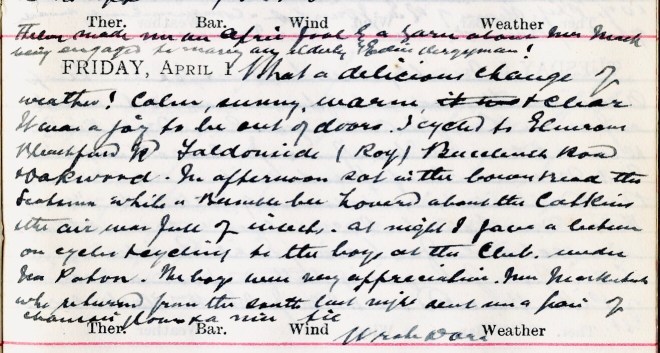 Ther. Bar. Wind Weather
made me an April fool by a yarn about Miss
being engaged to marry an elderly clergyman!
FRIDAY, APRIL 1 What a delicious change of
weather! Calm, sunny, warm, & clear
It was a joy to be out of doors. I cycled to
(Roy) Buccleuch Road
Oakwood. In afternoon sat in the bower & read the
Scotsman while a Bumble bee hovered about the Catkins
the air was full of insects. At night I gave a lecture
on cycles & cycling to the boys at the Club. under
Paton. The boys were very appreciative.
who returned from the south last night sent me a pair of
chamois gloves & a nice tie
Ther. Bar. Wind Weather
Wrote